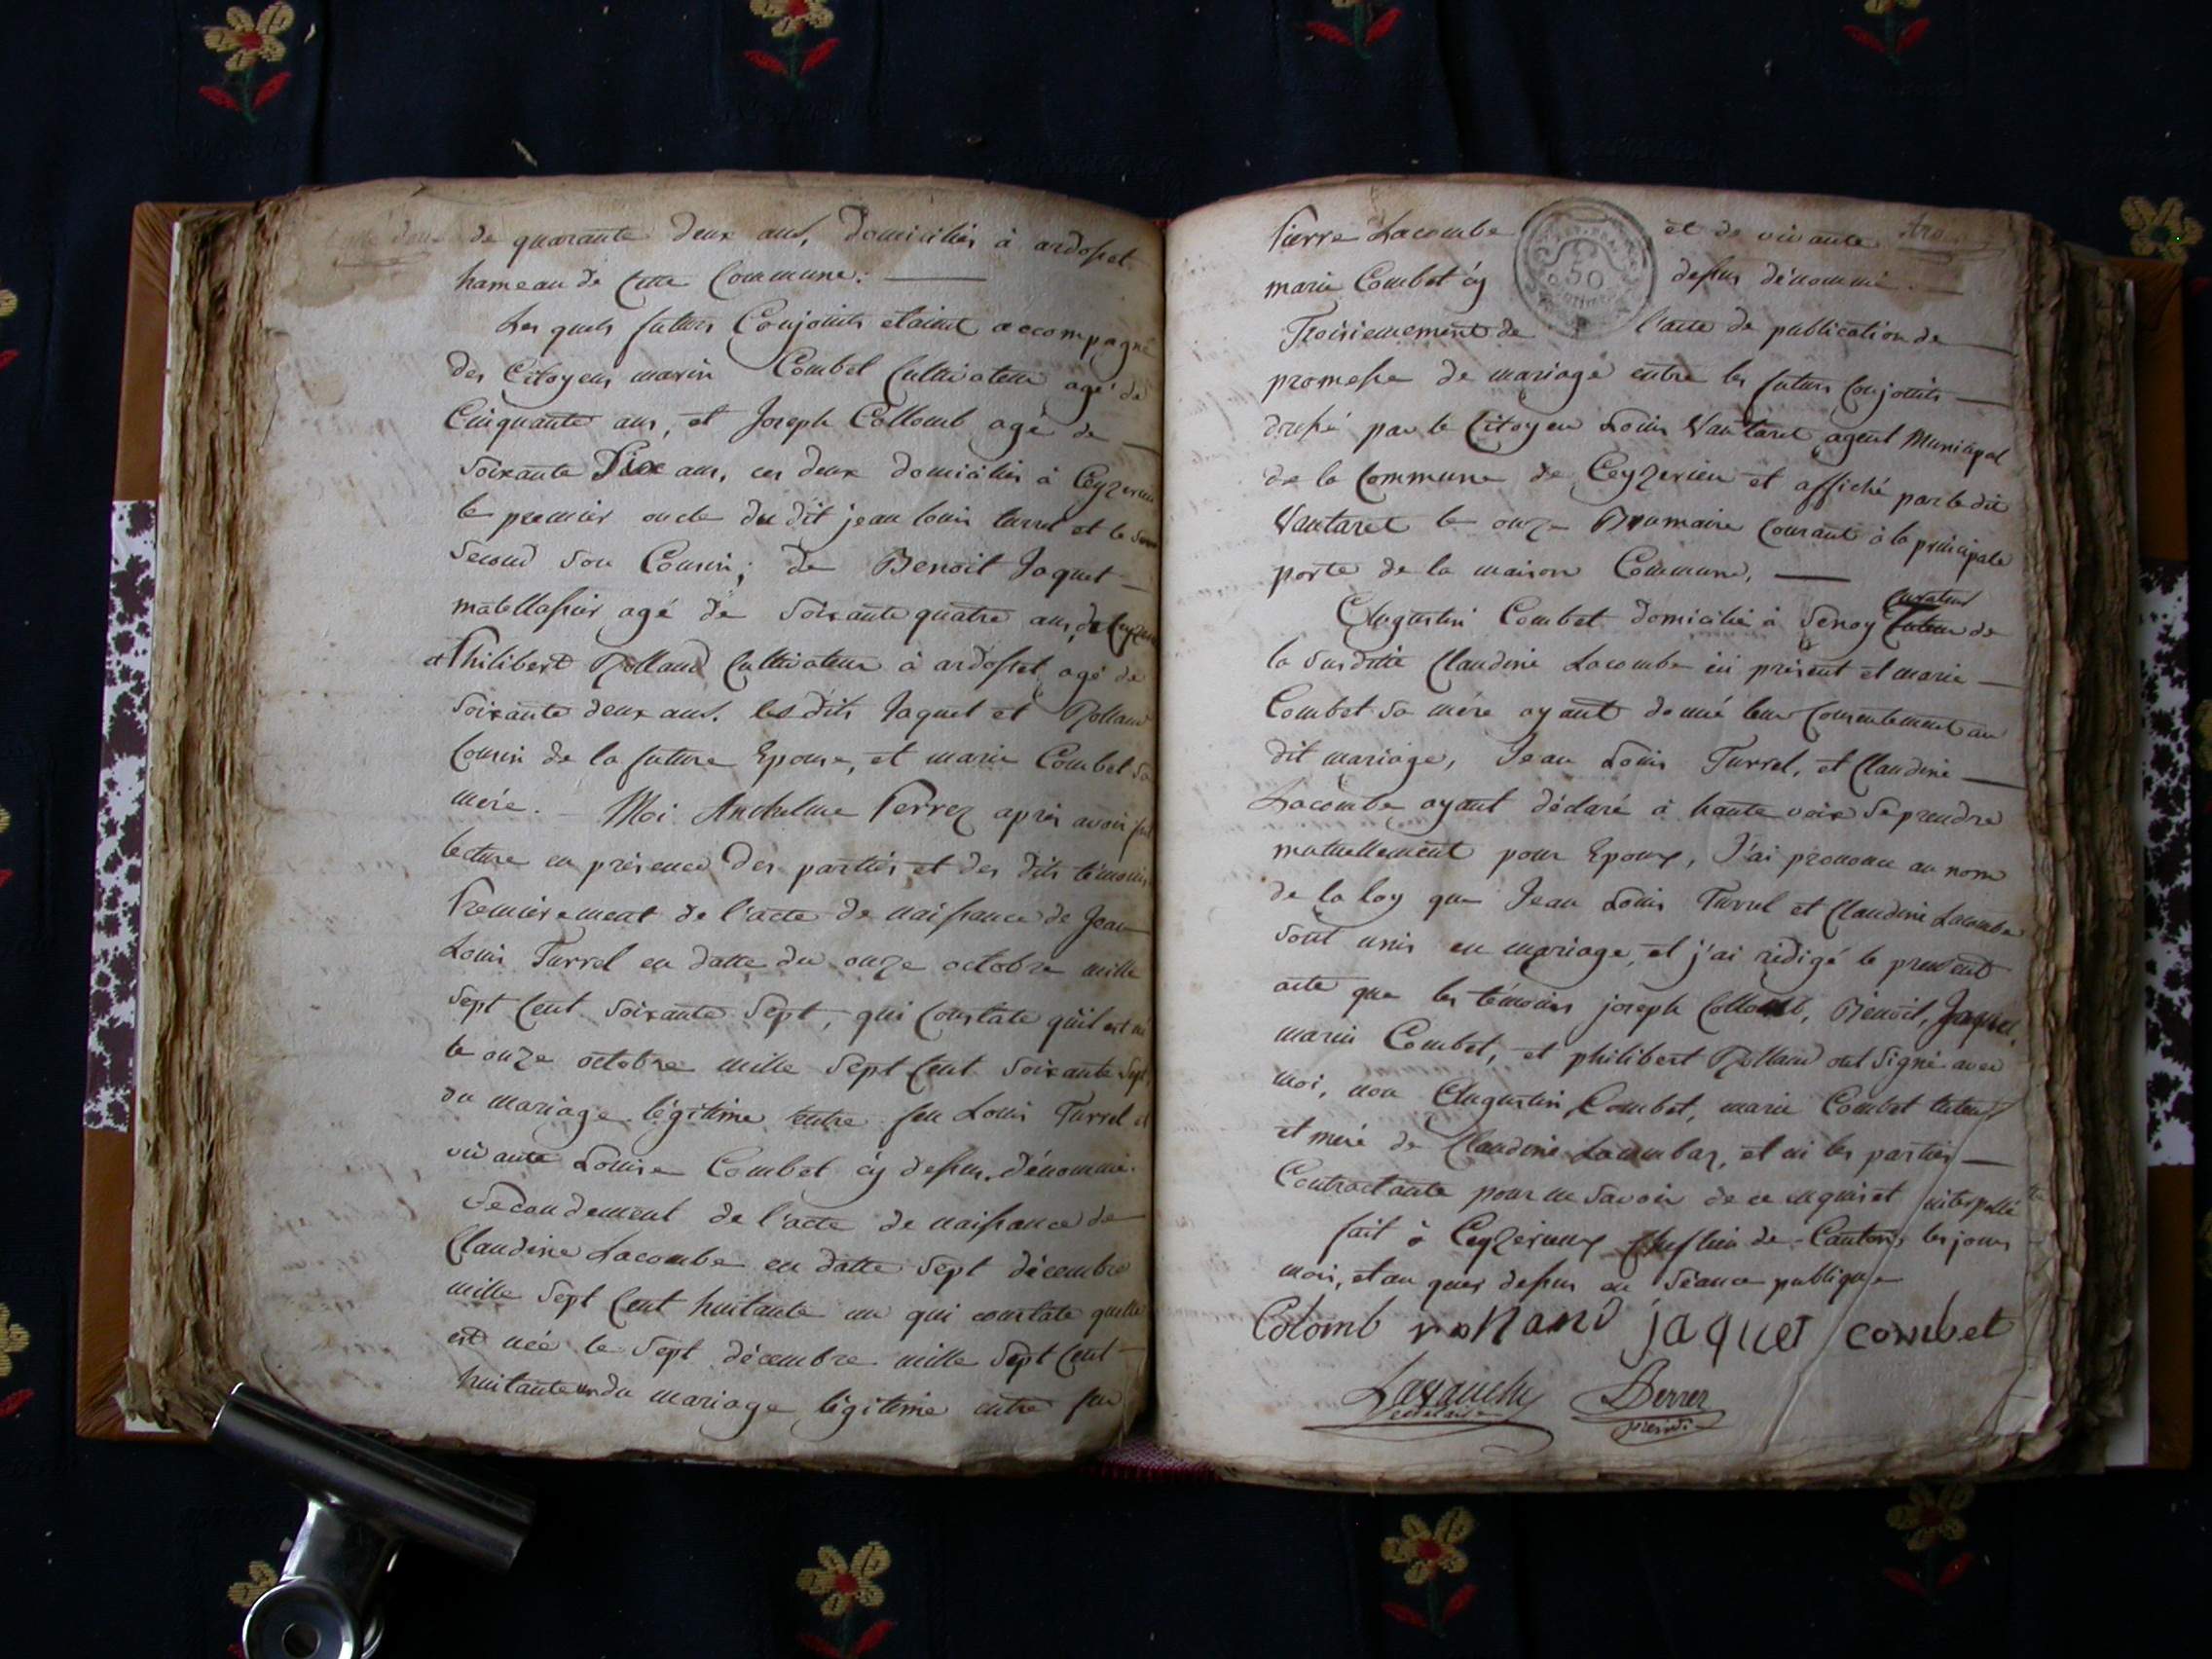 de quarante deux ans, domiciliés à ardosset
hameau de Cette Commune.
Les quels futurs Conjoints etaient accompagné
des Citoyens marin Combet Cultivateur agé de
Cinquante ans, et Joseph Collomb agé de
soixante Dix ans, ces deux domiciliés à Ceyzerieu
le premier oncle du dit jean louis turrel et le
second son Cousin; de Benoit Jaquet
matellassier agé de soixante quatre ans, de
et Philibert Rolland Cultivateur à ardosset agé de
soixante deux ans. les dits Jaquet et Rolland
Cousin de la future Epouse, et marie Combet sa
mère. Moi Anthelme Perrez après avoir fait
lecture en présence des parties et des dits témoins
Premièrement de l'acte de naissance de Jean
Louis Turrel en datte du onze octobre mille
sept Cent soixante sept, qui Constate qu'il est né
le onze octobre mille sept Cent soixante sept,
du mariage légitime entre feu Louis Turrel et
vivante Louise Combet cy dessus dénommé.
Secondement de l'acte de naissance de
Claudine Lacombe en datte sept décembre
mille sept Cent huitante un qui constate quelle
est née le sept décembre mille sept Cent
huitante un du mariage légitime entre feu
Pierre Lacombe et de vivante
marie Combet cy dessus dénommé.
50
Troisiemement de l'acte de publication de
promesse de mariage entre les futurs Conjoints
dressé par le Citoyen Louis Vantaret agent Municipal
de la Commune de Ceyzerieu et affiché par le dit
Vantaret le onze Brumaire Courant à la principale
porte de la maison Commune,
curateur
Augustin Combet domicilié à Senoy tuteur de
la susditte Claudine Lacombe ici présent et marie
Combet sa mère ayant donné leur Consentement au
dit mariage, Jean Louis Turrel, et Claudine
Lacombe ayant déclaré à haute voix se prendre
mutuellement pour Epoux, J'ai prononcé au nom
de la loy que Jean Louis Turrel et Claudine Lacombe
sont unis en mariage, et j'ai rédigé le present
acte que les témoins joseph Collomb, Benoit, Jaquet,
marin Combet, et philibert Rolland ont signé avec
moi, non Augustin Combet, marie Combet tuteur
et mère de Claudine Lacombaz, et ni les parties
Contractante pour ne savoir de ce enquis et interpellé
fait à Ceyzerieux Cheflieu de Canton, les jours
mois, et an que dessus en séance publique
Colomb rolland jaquet combet
Perrez